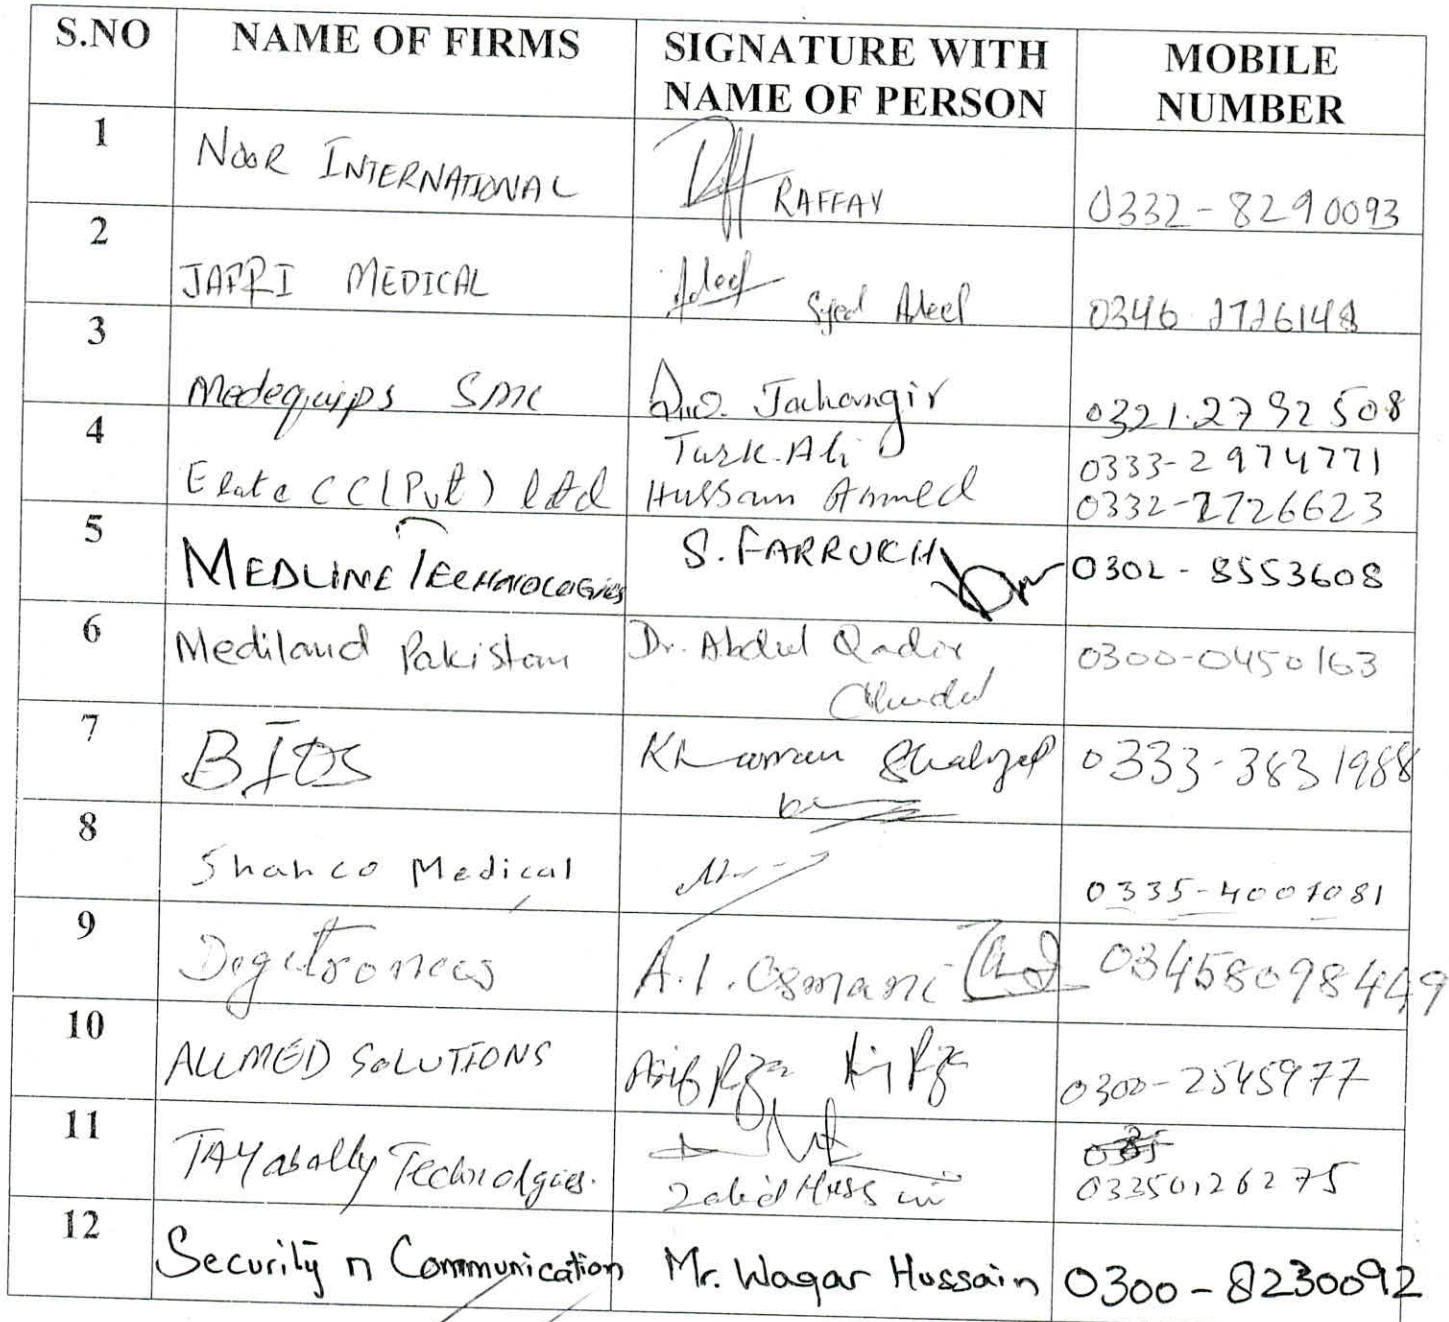 S.NO NAME OF FIRMS SIGNATURE WITH NAME OF PERSON MOBILE NUMBER
1 NOOR INTERNATIONAL RAFFAY 0332-8290093
2 JAFRI MEDICAL Adeel Syed Adeel 0346 2726148
3 Medequips SMC Jahangir 0321.2792508
4 Elate CC (Pvt) Ltd Turk.Ali 0333-2974771
Hussain Ahmed 0332-2726623
5 MEDLINE TECHNOLOGIES S. FARRUKH 0302-8553608
6 Mediland Pakistan Dr. Abdul Qadir 0300-0450163
7 BIOS Khurram 0333-3831988
8 Shahco Medical 0335-4001081
9 Digitronics A.I. Osmani 03458098449
10 ALLMED SOLUTIONS Asif Rza 0300-2545977
11 TAYabally Technolgies. Zahid Hussain 03350126275
12 Security n Communication Mr. Waqar Hussain 0300-8230092